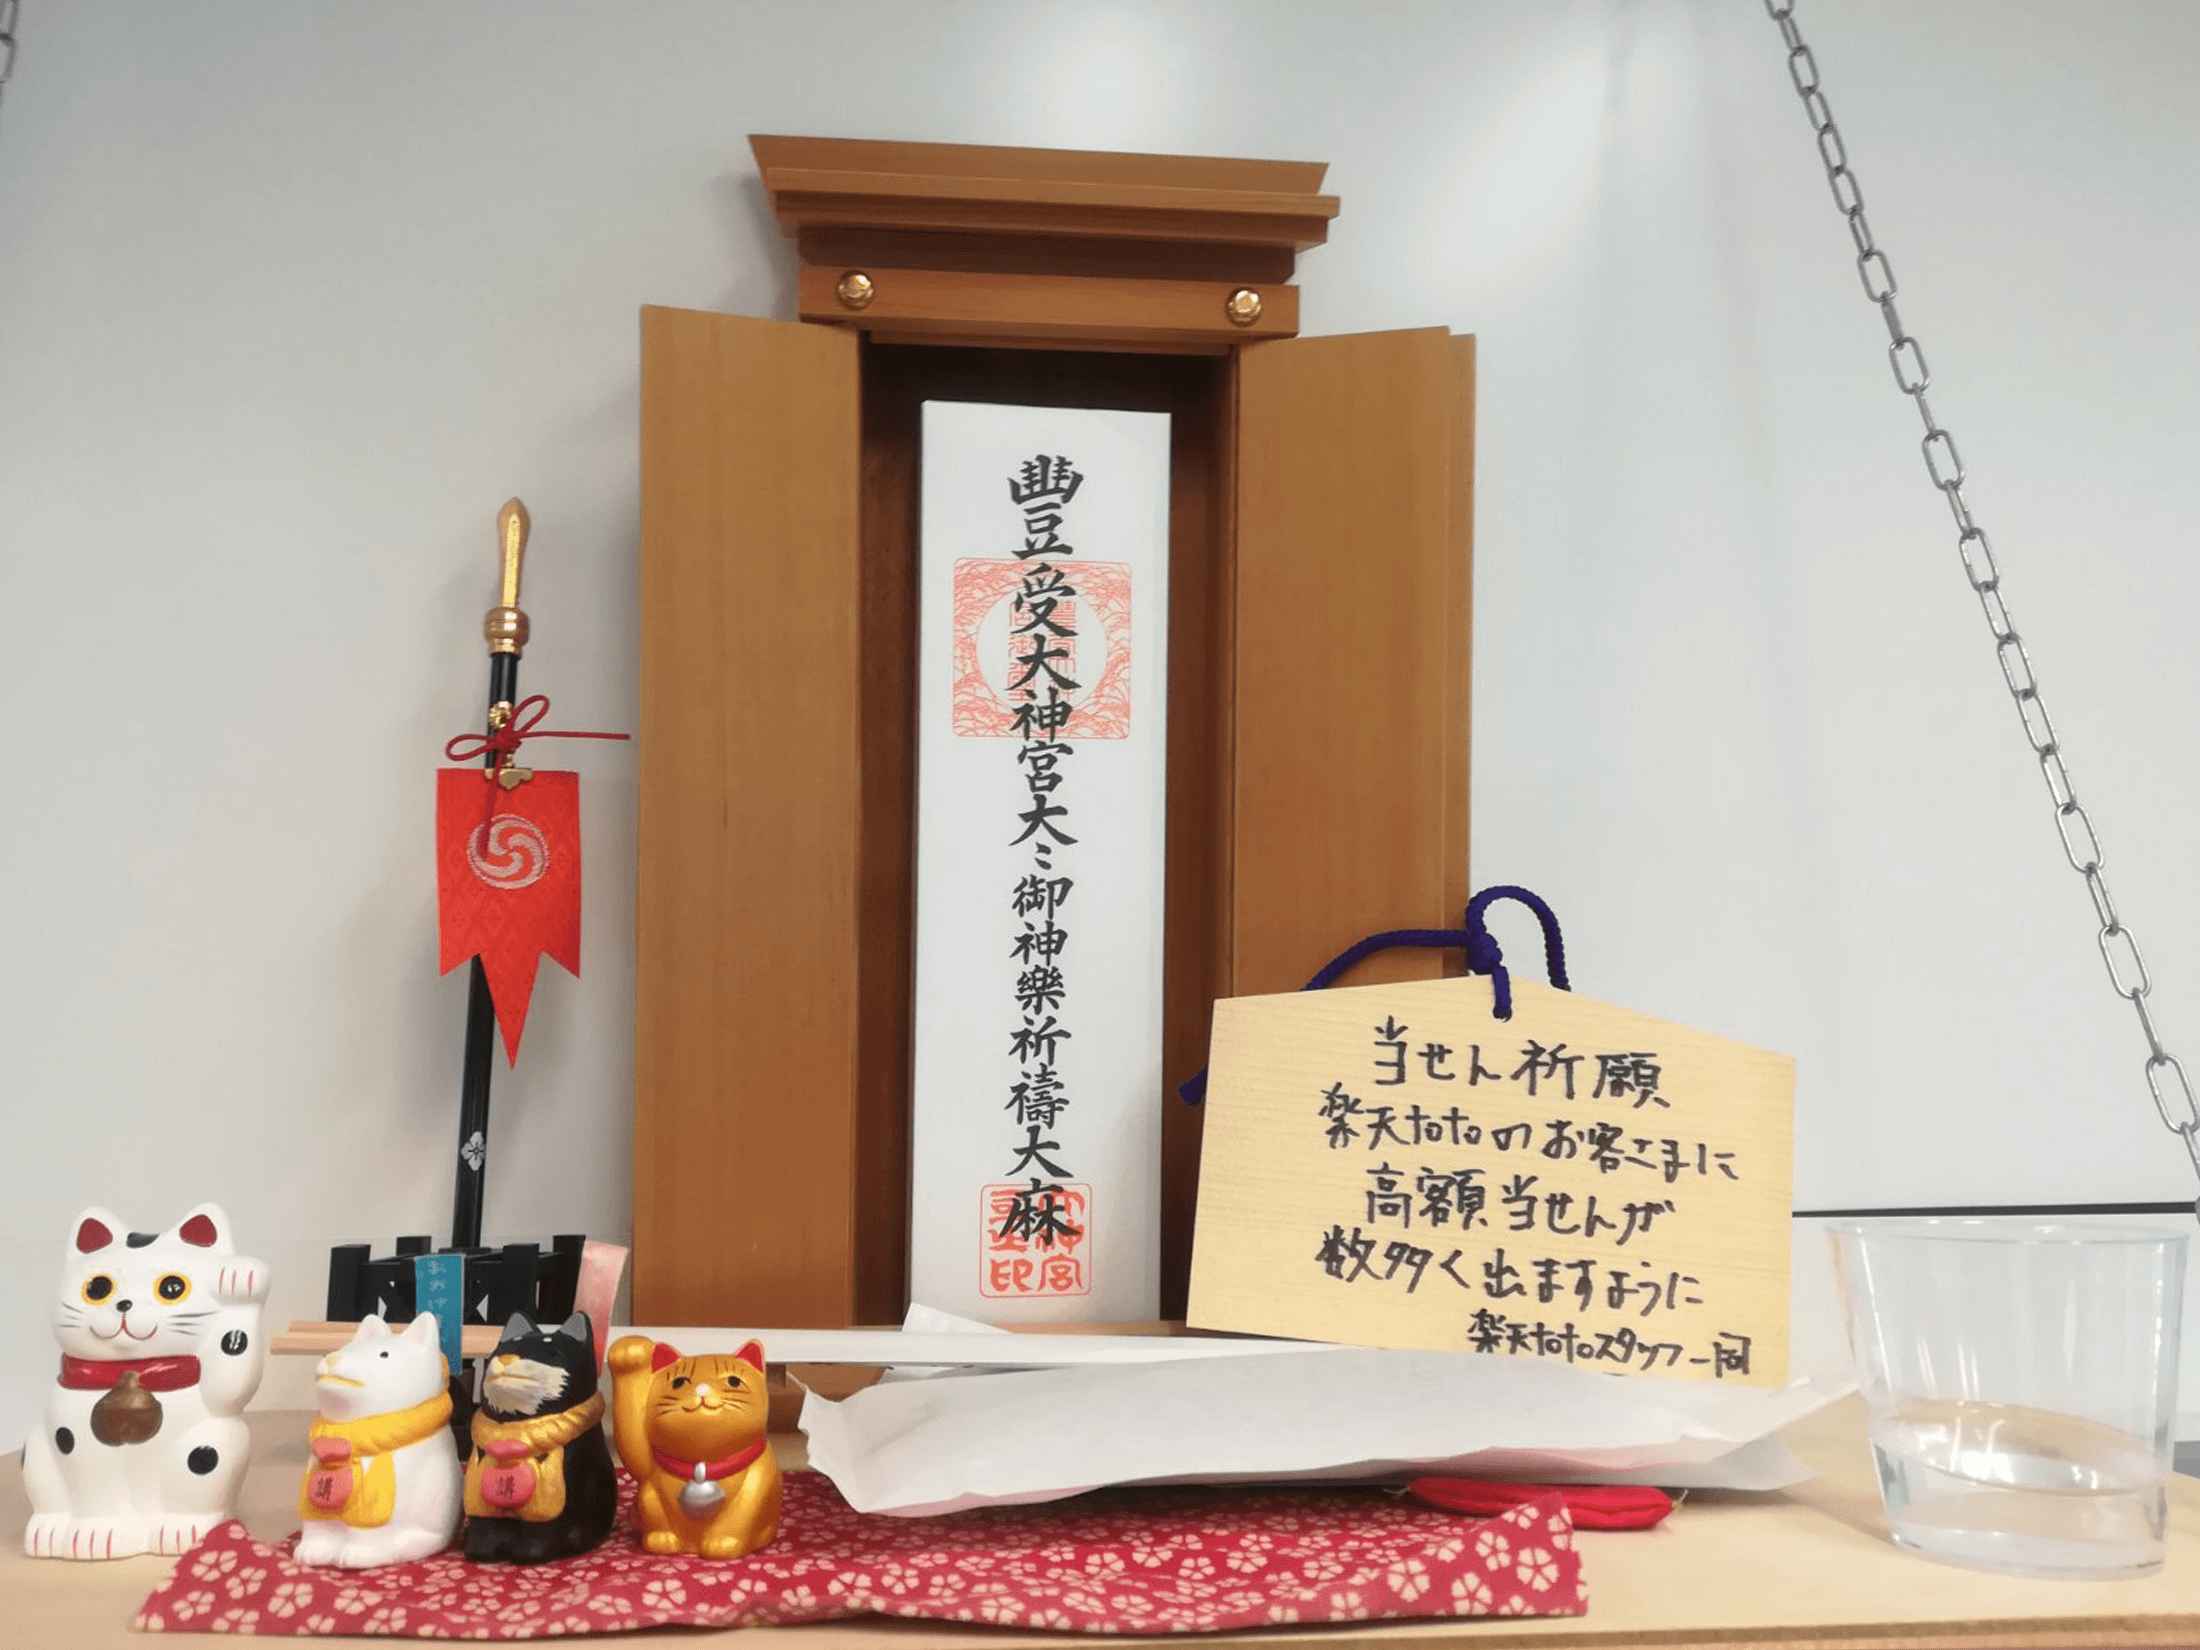 豐受大神宮大〻御神樂祈禱大麻
当せん祈願
楽天totoのお客さまに
高額当せんが
数多く出ますように
楽天totoスタッフ一同
講
講